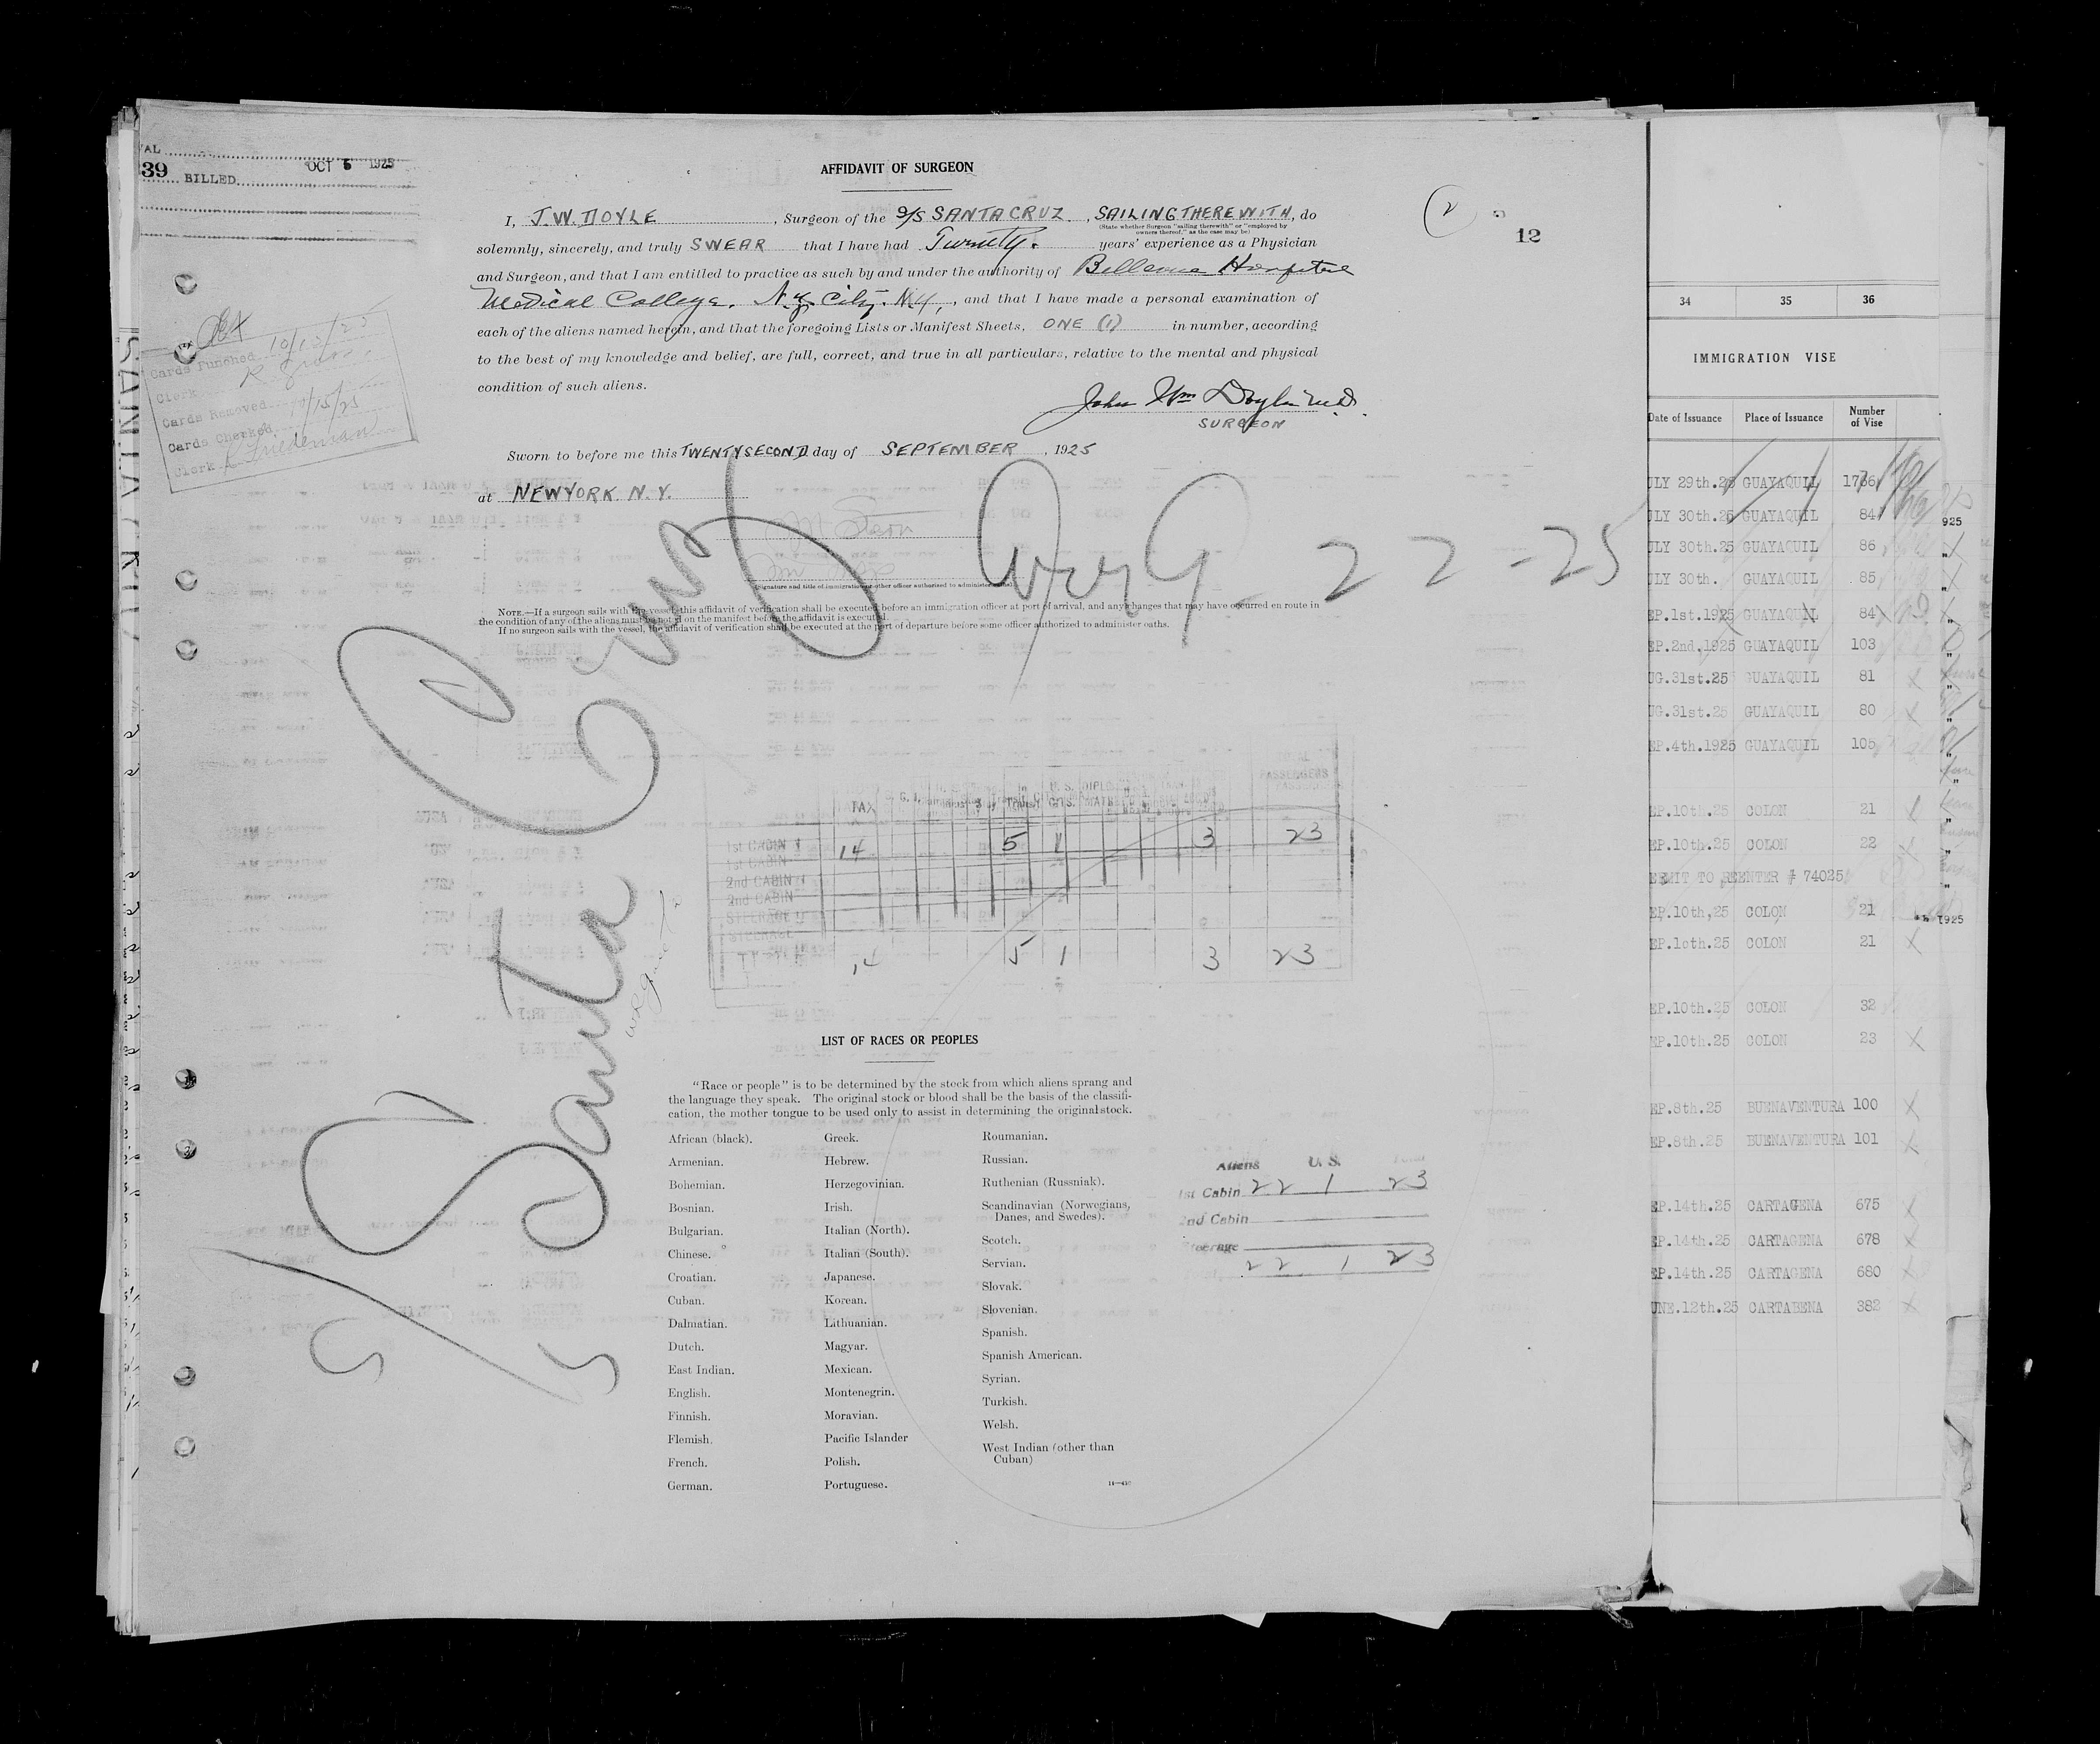 39 BILLED
OCT 5 1925
AFFIDAVIT OF SURGEON
I, J.W. DOYLE, Surgeon of the S/S SANTA CRUZ, SAILING THEREWITH, do
(State whether Surgeon "sailing therewith" or "employed by
owners thereof," as the case may be)
solemnly, sincerely, and truly SWEAR that I have had Twenty. years' experience as a Physician
and Surgeon, and that I am entitled to practice as such by and under the authority of Bellevue Hospital
Medical College, N.Y. City. N.Y., and that I have made a personal examination of
each of the aliens named herein, and that the foregoing Lists or Manifest Sheets, ONE (1) in number, according
to the best of my knowledge and belief, are full, correct, and true in all particulars, relative to the mental and physical
condition of such aliens.
John Wm Doyle M.D.
SURGEON
Sworn to before me this TWENTYSECOND day of SEPTEMBER, 1925
at NEWYORK. N.Y.
(Signature and title of immigration or other officer authorized to administer
NOTE.—If a surgeon sails with the vessel, this affidavit of verification shall be executed before an immigration officer at port of arrival, and any changes that may have occurred en route in
the condition of any of the aliens must be noted on the manifest before the affidavit is executed.
If no surgeon sails with the vessel, the affidavit of verification shall be executed at the port of departure before some officer authorized to administer oaths.
2
12
Cards Punched 10/13/25
Clerk
Cards Removed
Cards Checked 10/15/25
Clerk Friedeman
S/S Santa Cruz
22-25
TAX
PASSENGERS
1st CABIN 14 5 1 3 23
2nd CABIN
STEERAGE
14 5 1 3 23
LIST OF RACES OR PEOPLES
"Race or people" is to be determined by the stock from which aliens sprang and
the language they speak. The original stock or blood shall be the basis of the classifi-
cation, the mother tongue to be used only to assist in determining the original stock.
African (black).
Armenian.
Bohemian.
Bosnian.
Bulgarian.
Chinese.
Croatian.
Cuban.
Dalmatian.
Dutch.
East Indian.
English.
Finnish.
Flemish.
French.
German.
Greek.
Hebrew.
Herzegovinian.
Irish.
Italian (North).
Italian (South).
Japanese.
Korean.
Lithuanian.
Magyar.
Mexican.
Montenegrin.
Moravian.
Pacific Islander
Polish.
Portuguese.
Roumanian.
Russian.
Ruthenian (Russniak).
Scandinavian (Norwegians,
Danes, and Swedes).
Scotch.
Servian.
Slovak.
Slovenian.
Spanish.
Spanish American.
Syrian.
Turkish.
Welsh.
West Indian (other than
Cuban)
Aliens U. S.
1st Cabin 22 1 23
2nd Cabin
Steerage
22 1 23
34 35 36
IMMIGRATION VISE
Date of Issuance Place of Issuance Number of Vise
ULY 29th.25 GUAYAQUIL 1766
ULY 30th.25 GUAYAQUIL 84
ULY 30th.25 GUAYAQUIL 86
ULY 30th. GUAYAQUIL 85
EP.1st.1925 GUAYAQUIL 84
EP.2nd.1925 GUAYAQUIL 103
UG.31st.25 GUAYAQUIL 81
UG.31st.25 GUAYAQUIL 80
EP.4th.1925 GUAYAQUIL 105
EP.10th.25 COLON 21
EP.10th.25 COLON 22
ERMIT TO REENTER # 74025
EP.10th,25 COLON 21
EP.10th.25 COLON 21
EP.10th.25 COLON 32
EP.10th.25 COLON 23
EP.8th.25 BUENAVENTURA 100
EP.8th.25 BUENAVENTURA 101
EP.14th.25 CARTAGENA 675
EP.14th.25 CARTAGENA 678
EP.14th.25 CARTAGENA 680
UNE.12th.25 CARTABENA 382
925
1925